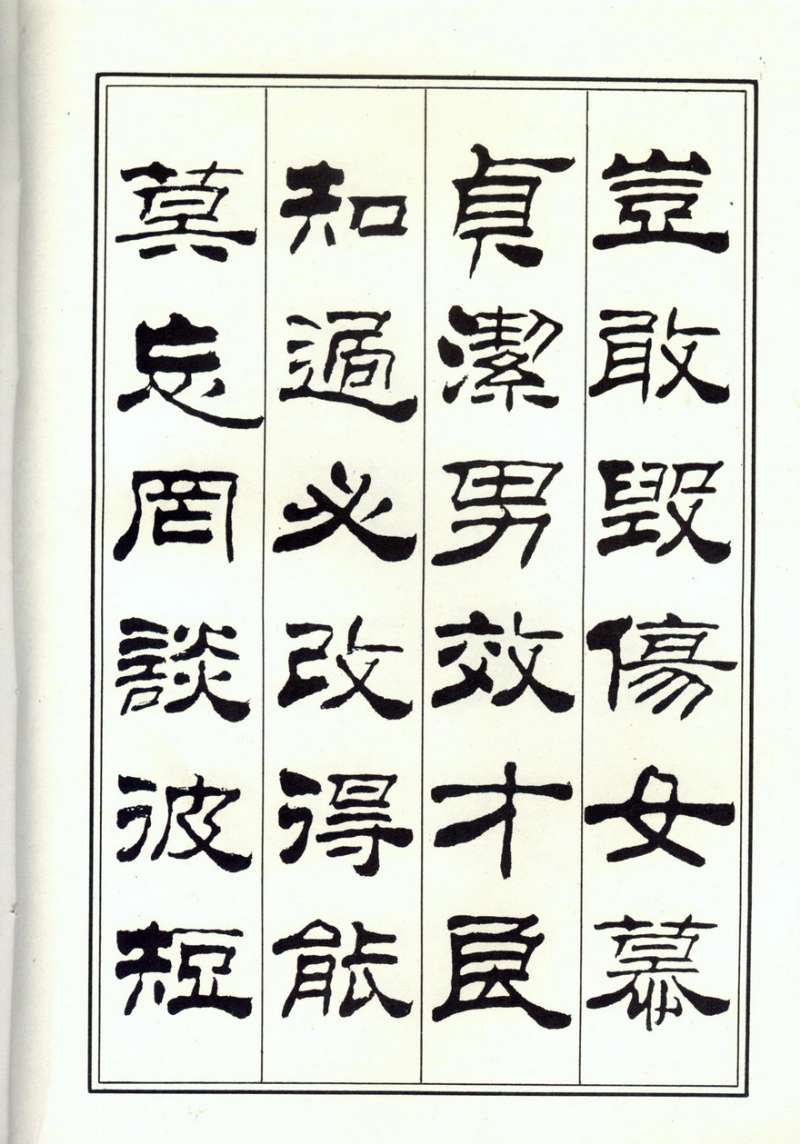 豈敢毀傷女慕
貞潔男效才良
知過必改得能
莫忘罔談彼短